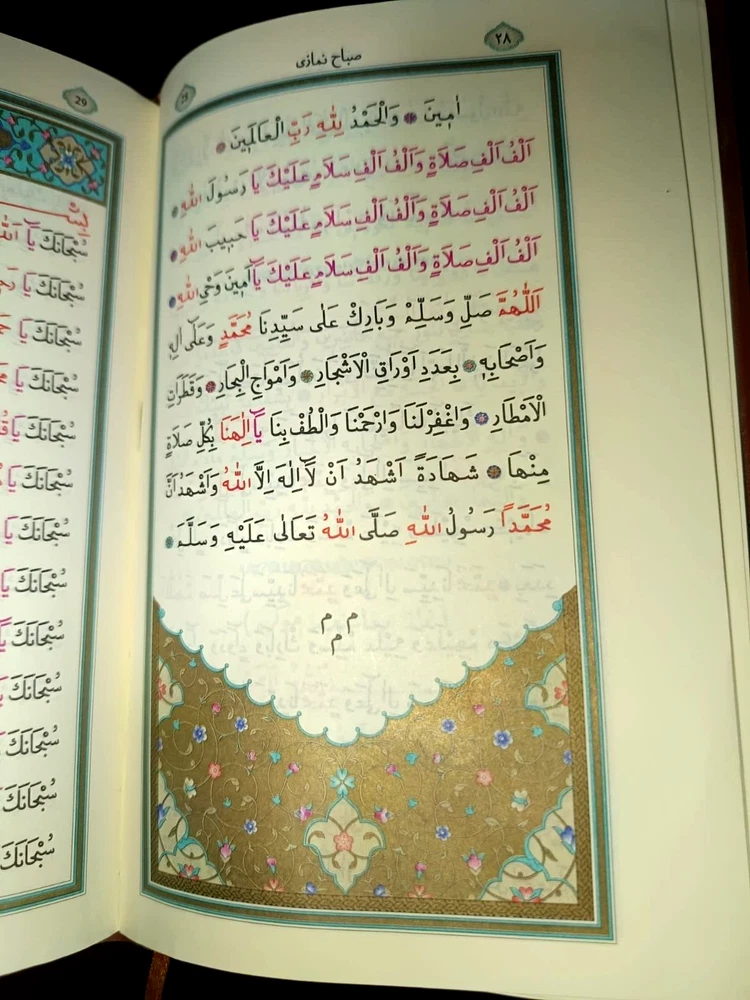 ٢٨
صباح نمازى
اٰمِينَ ۞ وَالْحَمْدُ لِلّٰهِ رَبِّ الْعَالَمِينَ ۞
اَلْفُ اَلْفِ صَلَاةٍ وَاَلْفُ اَلْفِ سَلَامٍ عَلَيْكَ يَا رَسُولَ اللّٰهِ ۞
اَلْفُ اَلْفِ صَلَاةٍ وَاَلْفُ اَلْفِ سَلَامٍ عَلَيْكَ يَا حَبِيبَ اللّٰهِ ۞
اَلْفُ اَلْفِ صَلَاةٍ وَاَلْفُ اَلْفِ سَلَامٍ عَلَيْكَ يَٓا اَمِينَ وَحْىِ اللّٰهِ ۞
اَللّٰهُمَّ صَلِّ وَسَلِّمْ وَبَارِكْ عَلٰى سَيِّدِنَا مُحَمَّدٍ وَعَلٰٓى اٰلِهٖ
وَاَصْحَابِهٖ ۞ بِعَدَدِ اَوْرَاقِ الْاَشْجَارِ ۞ وَاَمْوَاجِ الْبِحَارِ ۞ وَقَطَرَاتِ
الْاَمْطَارِ ۞ وَاغْفِرْلَنَا وَارْحَمْنَا وَالْطُفْ بِنَا يَٓا اِلٰهَنَا بِكُلِّ صَلَاةٍ
مِنْهَا ۞ شَهَادَةً اَشْهَدُ اَنْ لَٓا اِلٰهَ اِلَّا اللّٰهُ وَاَشْهَدُ اَنَّ
مُحَمَّدًا رَسُولُ اللّٰهِ صَلَّى اللّٰهُ تَعَالٰى عَلَيْهِ وَسَلَّمَ ۞
م م
م
29
سُبْحَانَكَ يَٓا
سُبْحَانَكَ يَا
سُبْحَانَكَ يَا
سُبْحَانَكَ يَا
سُبْحَانَكَ يَا
سُبْحَانَكَ يَا
سُبْحَانَكَ يَا
سُبْحَانَكَ يَا
سُبْحَانَكَ
سُبْحَانَكَ
سُبْحَانَكَ
سُبْحَانَكَ
سُبْحَانَكَ